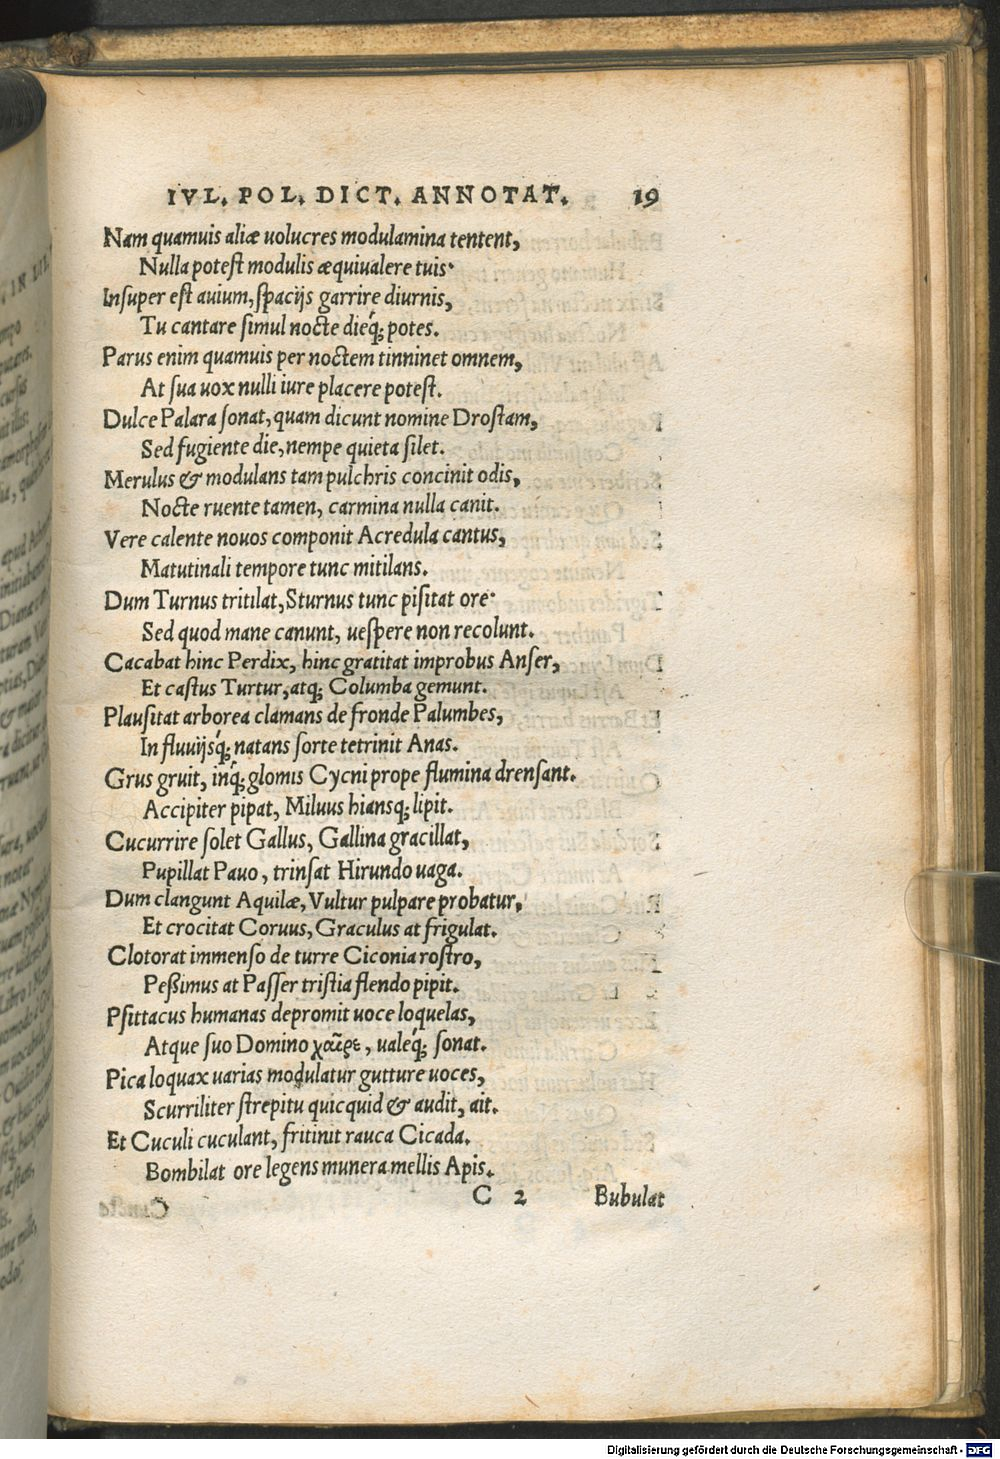 IVL. POL. DICT. ANNOTAT. 19
Nam quamuis aliæ uolucres modulamina tentent,
Nulla potest modulis æquiualere tuis·
Insuper est auium, spacijs garrire diurnis,
Tu cantare simul nocte dieq́; potes.
Parus enim quamuis per noctem tinninet omnem,
At sua uox nulli iure placere potest.
Dulce Palara sonat, quam dicunt nomine Drostam,
Sed fugiente die, nempe quieta silet.
Merulus & modulans tam pulchris concinit odis,
Nocte ruente tamen, carmina nulla canit.
Vere calente nouos componit Acredula cantus,
Matutinali tempore tunc mitilans.
Dum Turnus tritilat, Sturnus tunc pisitat ore·
Sed quod mane canunt, uespere non recolunt.
Cacabat hinc Perdix, hinc gratitat improbus Anser,
Et castus Turtur, atq; Columba gemunt.
Plausitat arborea clamans de fronde Palumbes,
In fluuijsq́; natans sorte tetrinit Anas.
Grus gruit, inq́; glomis Cycni prope flumina drensant.
Accipiter pipat, Miluus hiansq; lipit.
Cucurrire solet Gallus, Gallina gracillat,
Pupillat Pauo, trinsat Hirundo uaga.
Dum clangunt Aquilæ, Vultur pulpare probatur,
Et crocitat Coruus, Graculus at frigulat.
Clotorat immenso de turre Ciconia rostro,
Peßimus at Passer tristia flendo pipit.
Psittacus humanas depromit uoce loquelas,
Atque suo Domino χαῖρε, ualeq́; sonat.
Pica loquax uarias modulatur gutture uoces,
Scurriliter strepitu quicquid & audit, ait.
Et Cuculi cuculant, fritinit rauca Cicada.
Bombilat ore legens munera mellis Apis.
C 2 Bubulat
Digitalisierung gefördert durch die Deutsche Forschungsgemeinschaft - DFG